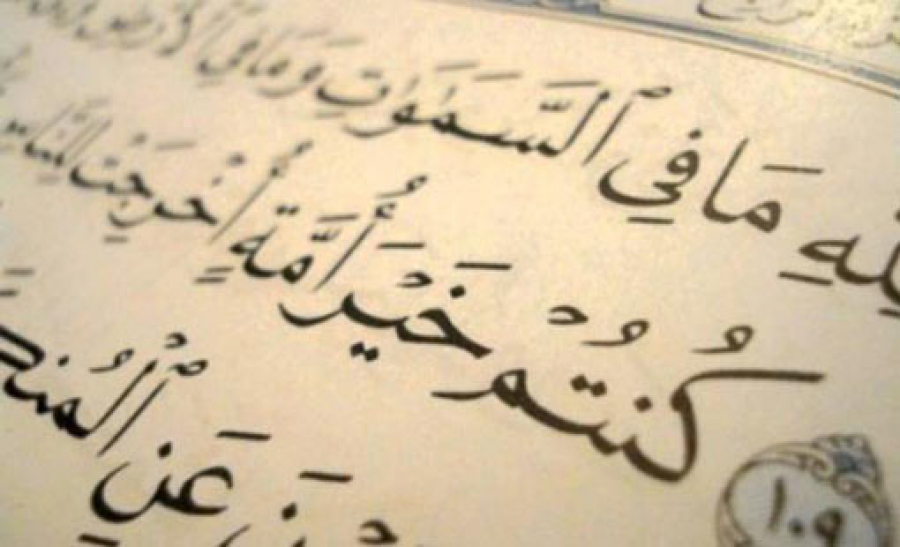 لِلَّهِ مَا فِي ٱلسَّمَٰوَٰتِ وَمَا فِي ٱلْأَرْضِ
١٠٩ كُنتُمْ خَيْرَ أُمَّةٍ أُخْرِجَتْ لِلنَّاسِ
عَنِ ٱلْمُنكَرِ